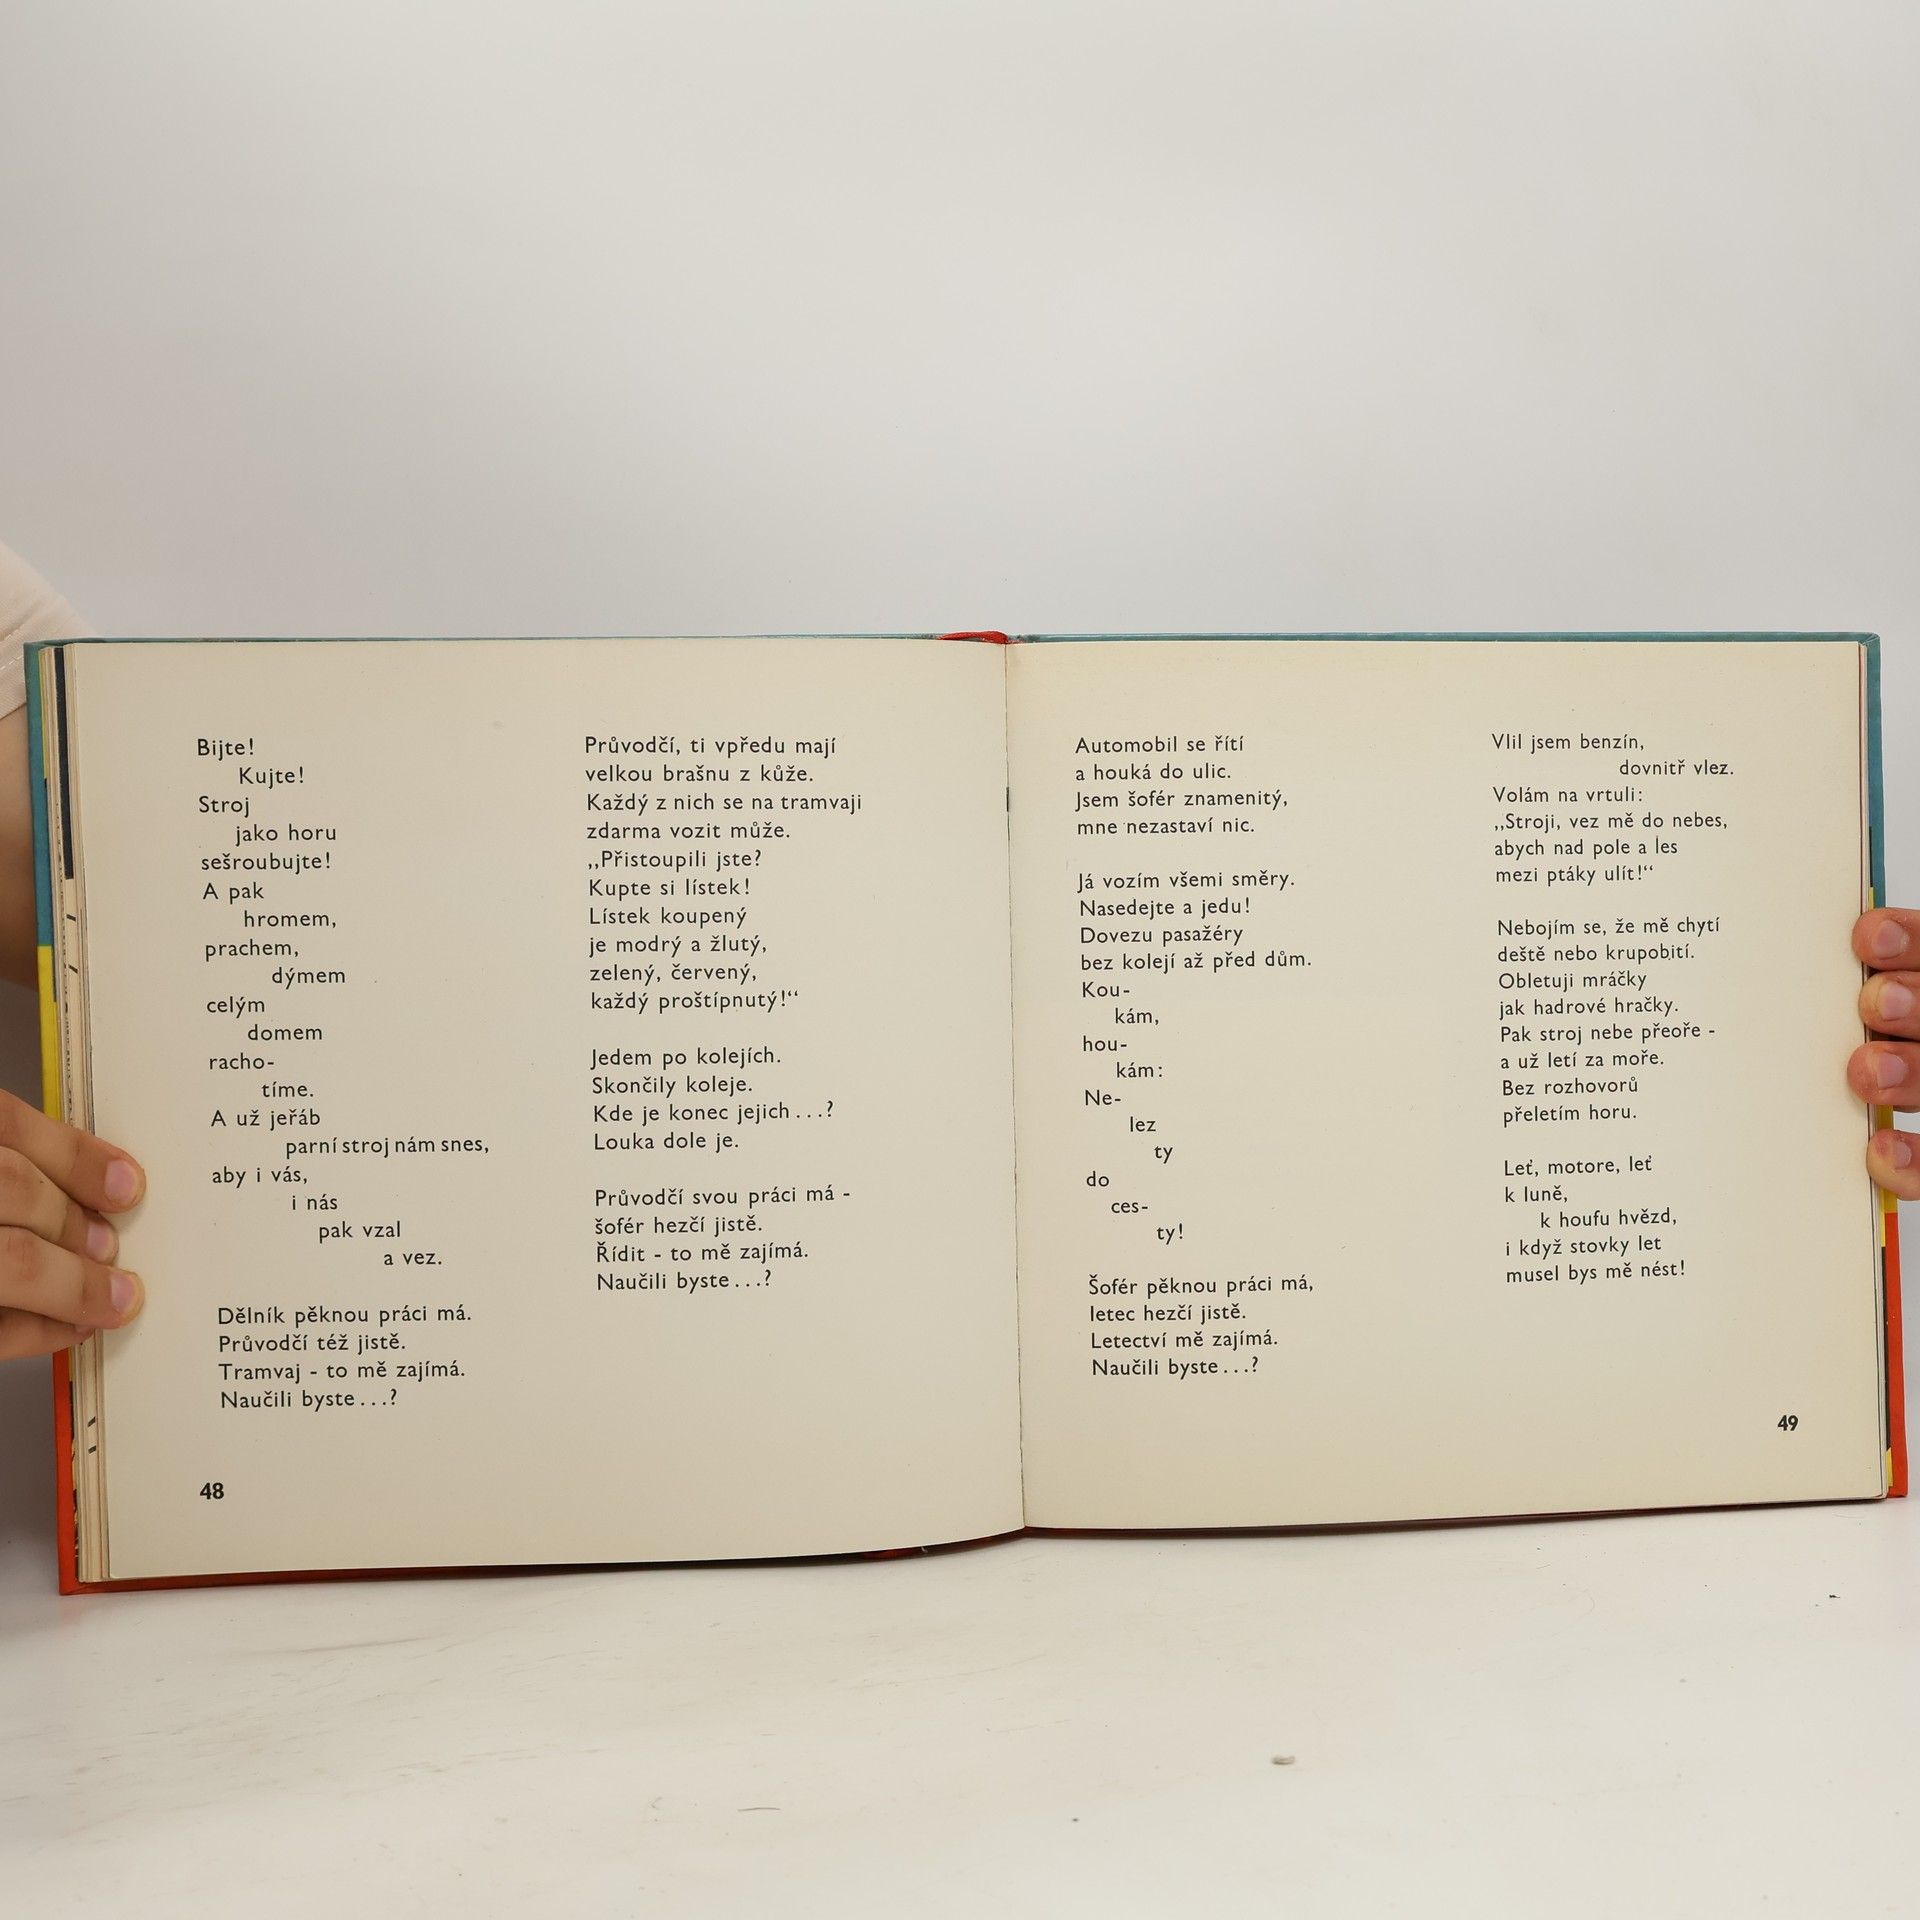 Bijte!
Kujte!
Stroj
jako horu
sešroubujte!
A pak
hromem,
prachem,
dýmem
celým
domem
racho-
tíme.
A už jeřáb
parní stroj nám snes,
aby i vás,
i nás
pak vzal
a vez.
Dělník pěknou práci má.
Průvodčí též jistě.
Tramvaj - to mě zajímá.
Naučili byste...?
48
Průvodčí, ti vpředu mají
velkou brašnu z kůže.
Každý z nich se na tramvaji
zdarma vozit může.
,,Přistoupili jste?
Kupte si lístek!
Lístek koupený
je modrý a žlutý,
zelený, červený,
každý proštípnutý!“
Jedem po kolejích.
Skončily koleje.
Kde je konec jejich...?
Louka dole je.
Průvodčí svou práci má -
šofér hezčí jistě.
Řídit - to mě zajímá.
Naučili byste...?
Automobil se řítí
a houká do ulic.
Jsem šofér znamenitý,
mne nezastaví nic.
Já vozím všemi směry.
Nasedejte a jedu!
Dovezu pasažéry
bez kolejí až před dům.
Kou-
kám,
hou-
kám:
Ne-
lez
ty
do
ces-
ty!
Šofér pěknou práci má,
letec hezčí jistě.
Letectví mě zajímá.
Naučili byste...?
Vlil jsem benzín,
dovnitř vlez.
Volám na vrtuli:
,,Stroji, vez mě do nebes,
abych nad pole a les
mezi ptáky ulít!“
Nebojím se, že mě chytí
deště nebo krupobití.
Obletuji mráčky
jak hadrové hračky.
Pak stroj nebe přeoře -
a už letí za moře.
Bez rozhovorů
přeletím horu.
Leť, motore, leť
k luně,
k houfu hvězd,
i když stovky let
musel bys mě nést!
49